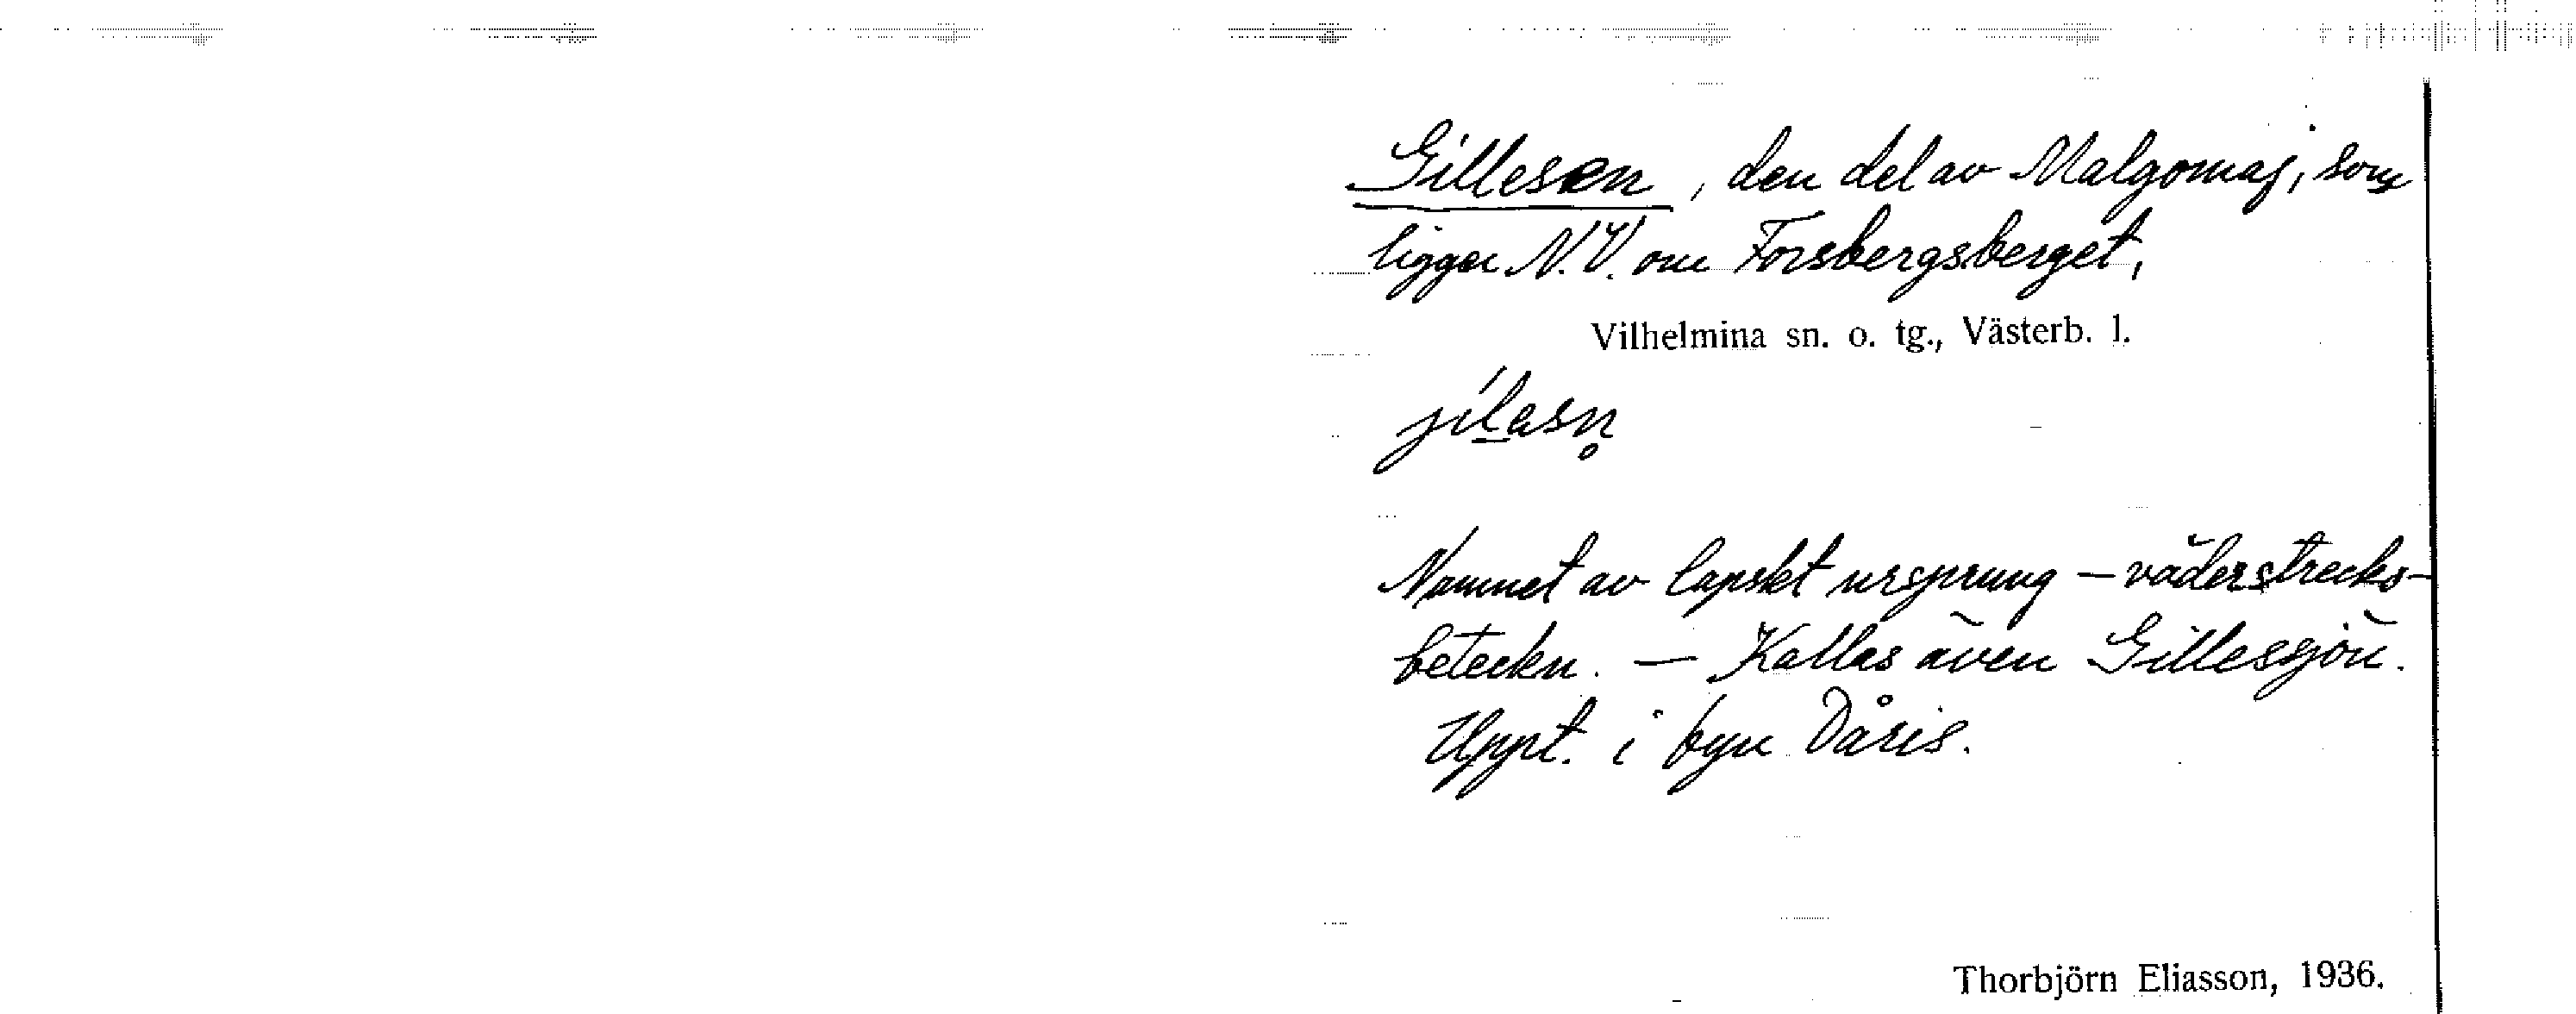 Gillesen, den del av Malgomaj, som
ligger N.V. om Forsbergsberget,
Vilhelmina sn. o. tg., Västerb. l.
jíl̲asn̥
Namnet av lapskt ursprung – väderstrecks-
beteckn. – Kallas även Gillessjön.
Uppt. i byn Dåris.
Thorbjörn Eliasson, 1936.